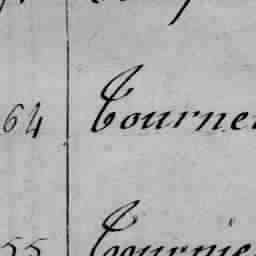 64 Tourne
55 Tournie